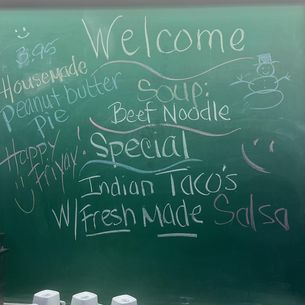 Welcome
3.95
Housemade
Peanut butter
Pie
Soup:
Beef Noodle
Happy
Friyay!
Special
Indian Taco's
W/Fresh Made Salsa